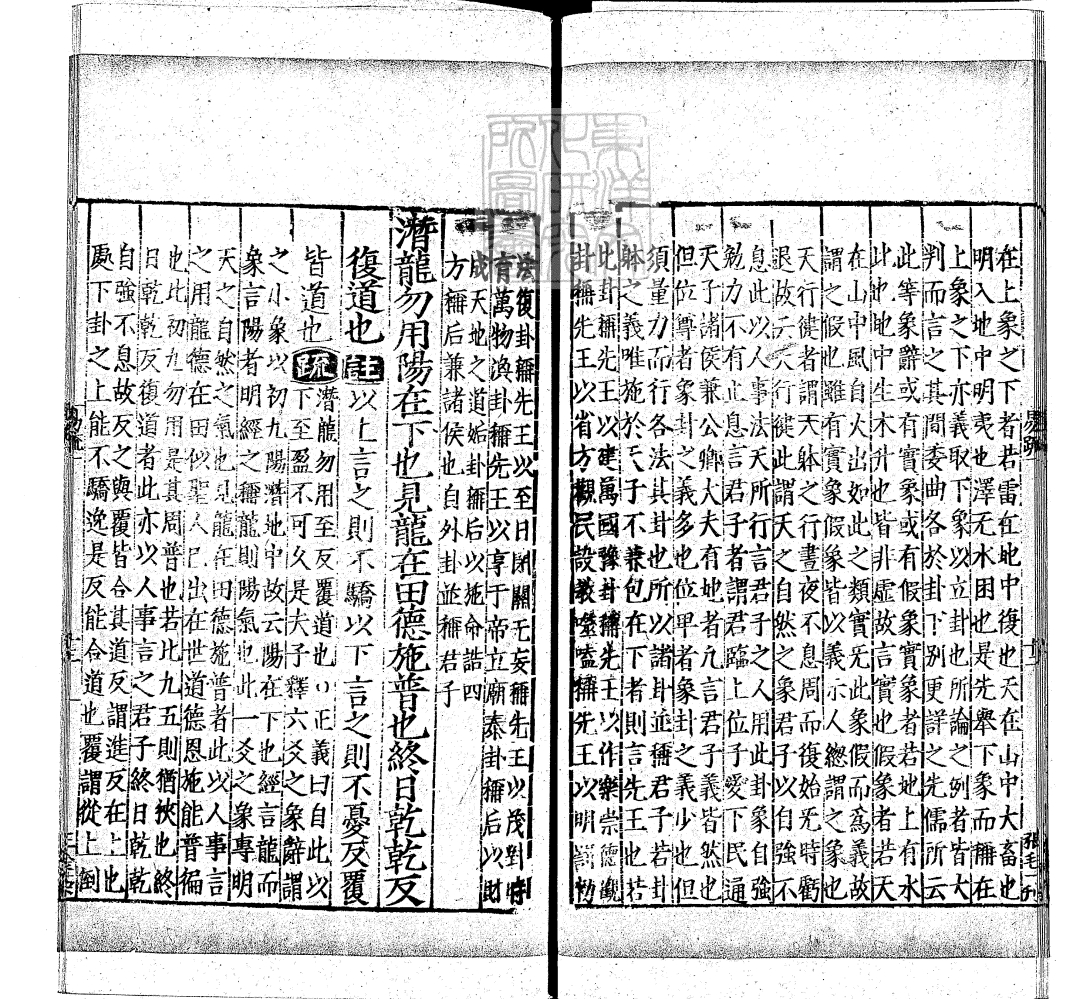 在上象之下者若雷在地中復也天在山中大畜也
明入地中明夷也澤无水困也是先舉下象而稱在
上象之下亦義取下象以立卦也所論之例者皆大
判而言之其間委曲各於卦下別更詳之先儒所云
此等象辭或有實象或有假象實象者若地上有水
此也地中生木升也皆非虛故言實也假象者若天
在山中風自火出如此之類實无此象假而為義故
謂之假也雖有實象假象皆以義示人緫謂之象也
天行健者謂天躰之行晝夜不息周而復始无時虧
退故云天行健此謂天之自然之象君子以自強不
息此以人事法天所行言君子之人用此卦象自強
勉力不有止息言君子者謂君臨上位子愛下民通
天子諸侯兼公卿大夫有地者凢言君子義皆然也
但位尊者象卦之義多也位卑者象卦之義少也但
須量力而行各法其卦也所以諸卦並稱君子若卦
躰之義唯施於天子不兼包在下者則言先王也若
比卦稱先王以建萬國豫卦稱先王以作樂崇德觀
卦稱先王以省方觀民設教噬嗑稱先王以明罰勑
法復卦稱先王以至日閉關无妄稱先王以茂對時
育萬物渙卦稱先王以享于帝立廟泰卦稱后以財
成天地之道姤卦稱后以施命誥四
方稱后兼諸侯也自外卦並稱君子
潛龍勿用陽在下也見龍在田德施普也終日乾乾反
復道也註以上言之則不驕以下言之則不憂反覆
皆道也疏潛龍勿用至反覆道也○正義曰自此以
下至盈不可久是夫子釋六爻之象辭謂
之小象以初九陽潛地中故云陽在下也經言龍而
象言陽者明經之稱龍則陽氣也此一爻之象專明
天之自然之氣也見龍在田德施普者此以人事言
之用龍德在田似聖人已出在世道德恩施能普徧
也此初九勿用是其周普也若比九五則猶狹也終
日乾乾反復道者此亦以人事言之君子終日乾乾
自強不息故反之與覆皆合其道反謂進反在上也
處下卦之上能不驕逸是反能合道也覆謂從上倒